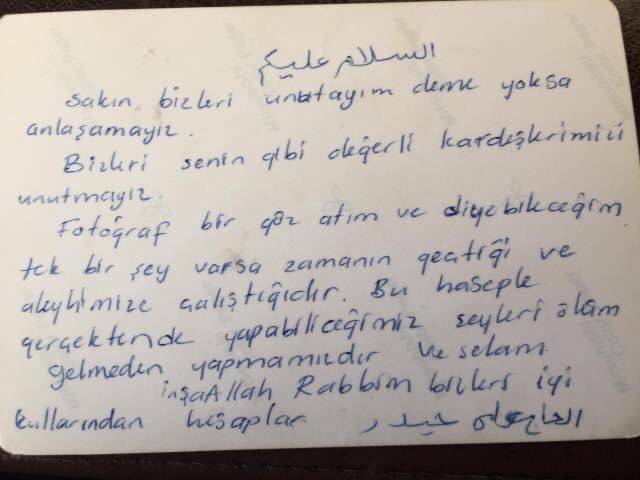 السلام عليكم
sakın bizleri unutayım deme yoksa
anlaşamayız.
Bizleri senin gibi değerli kardeşlerimizi
unutmayız.
Fotoğraf bir göz atım ve diyebileceğim
tek bir şey varsa zamanın geçtiği ve
aleyhimize çalıştığıdır. Bu haseple
gerçektende yapabiliceğimiz şeyleri ölüm
gelmeden yapmamızdır ve selam
inşaAllah Rabbim bizleri iyi
kullarından hesaplar الحاج علي حيدر